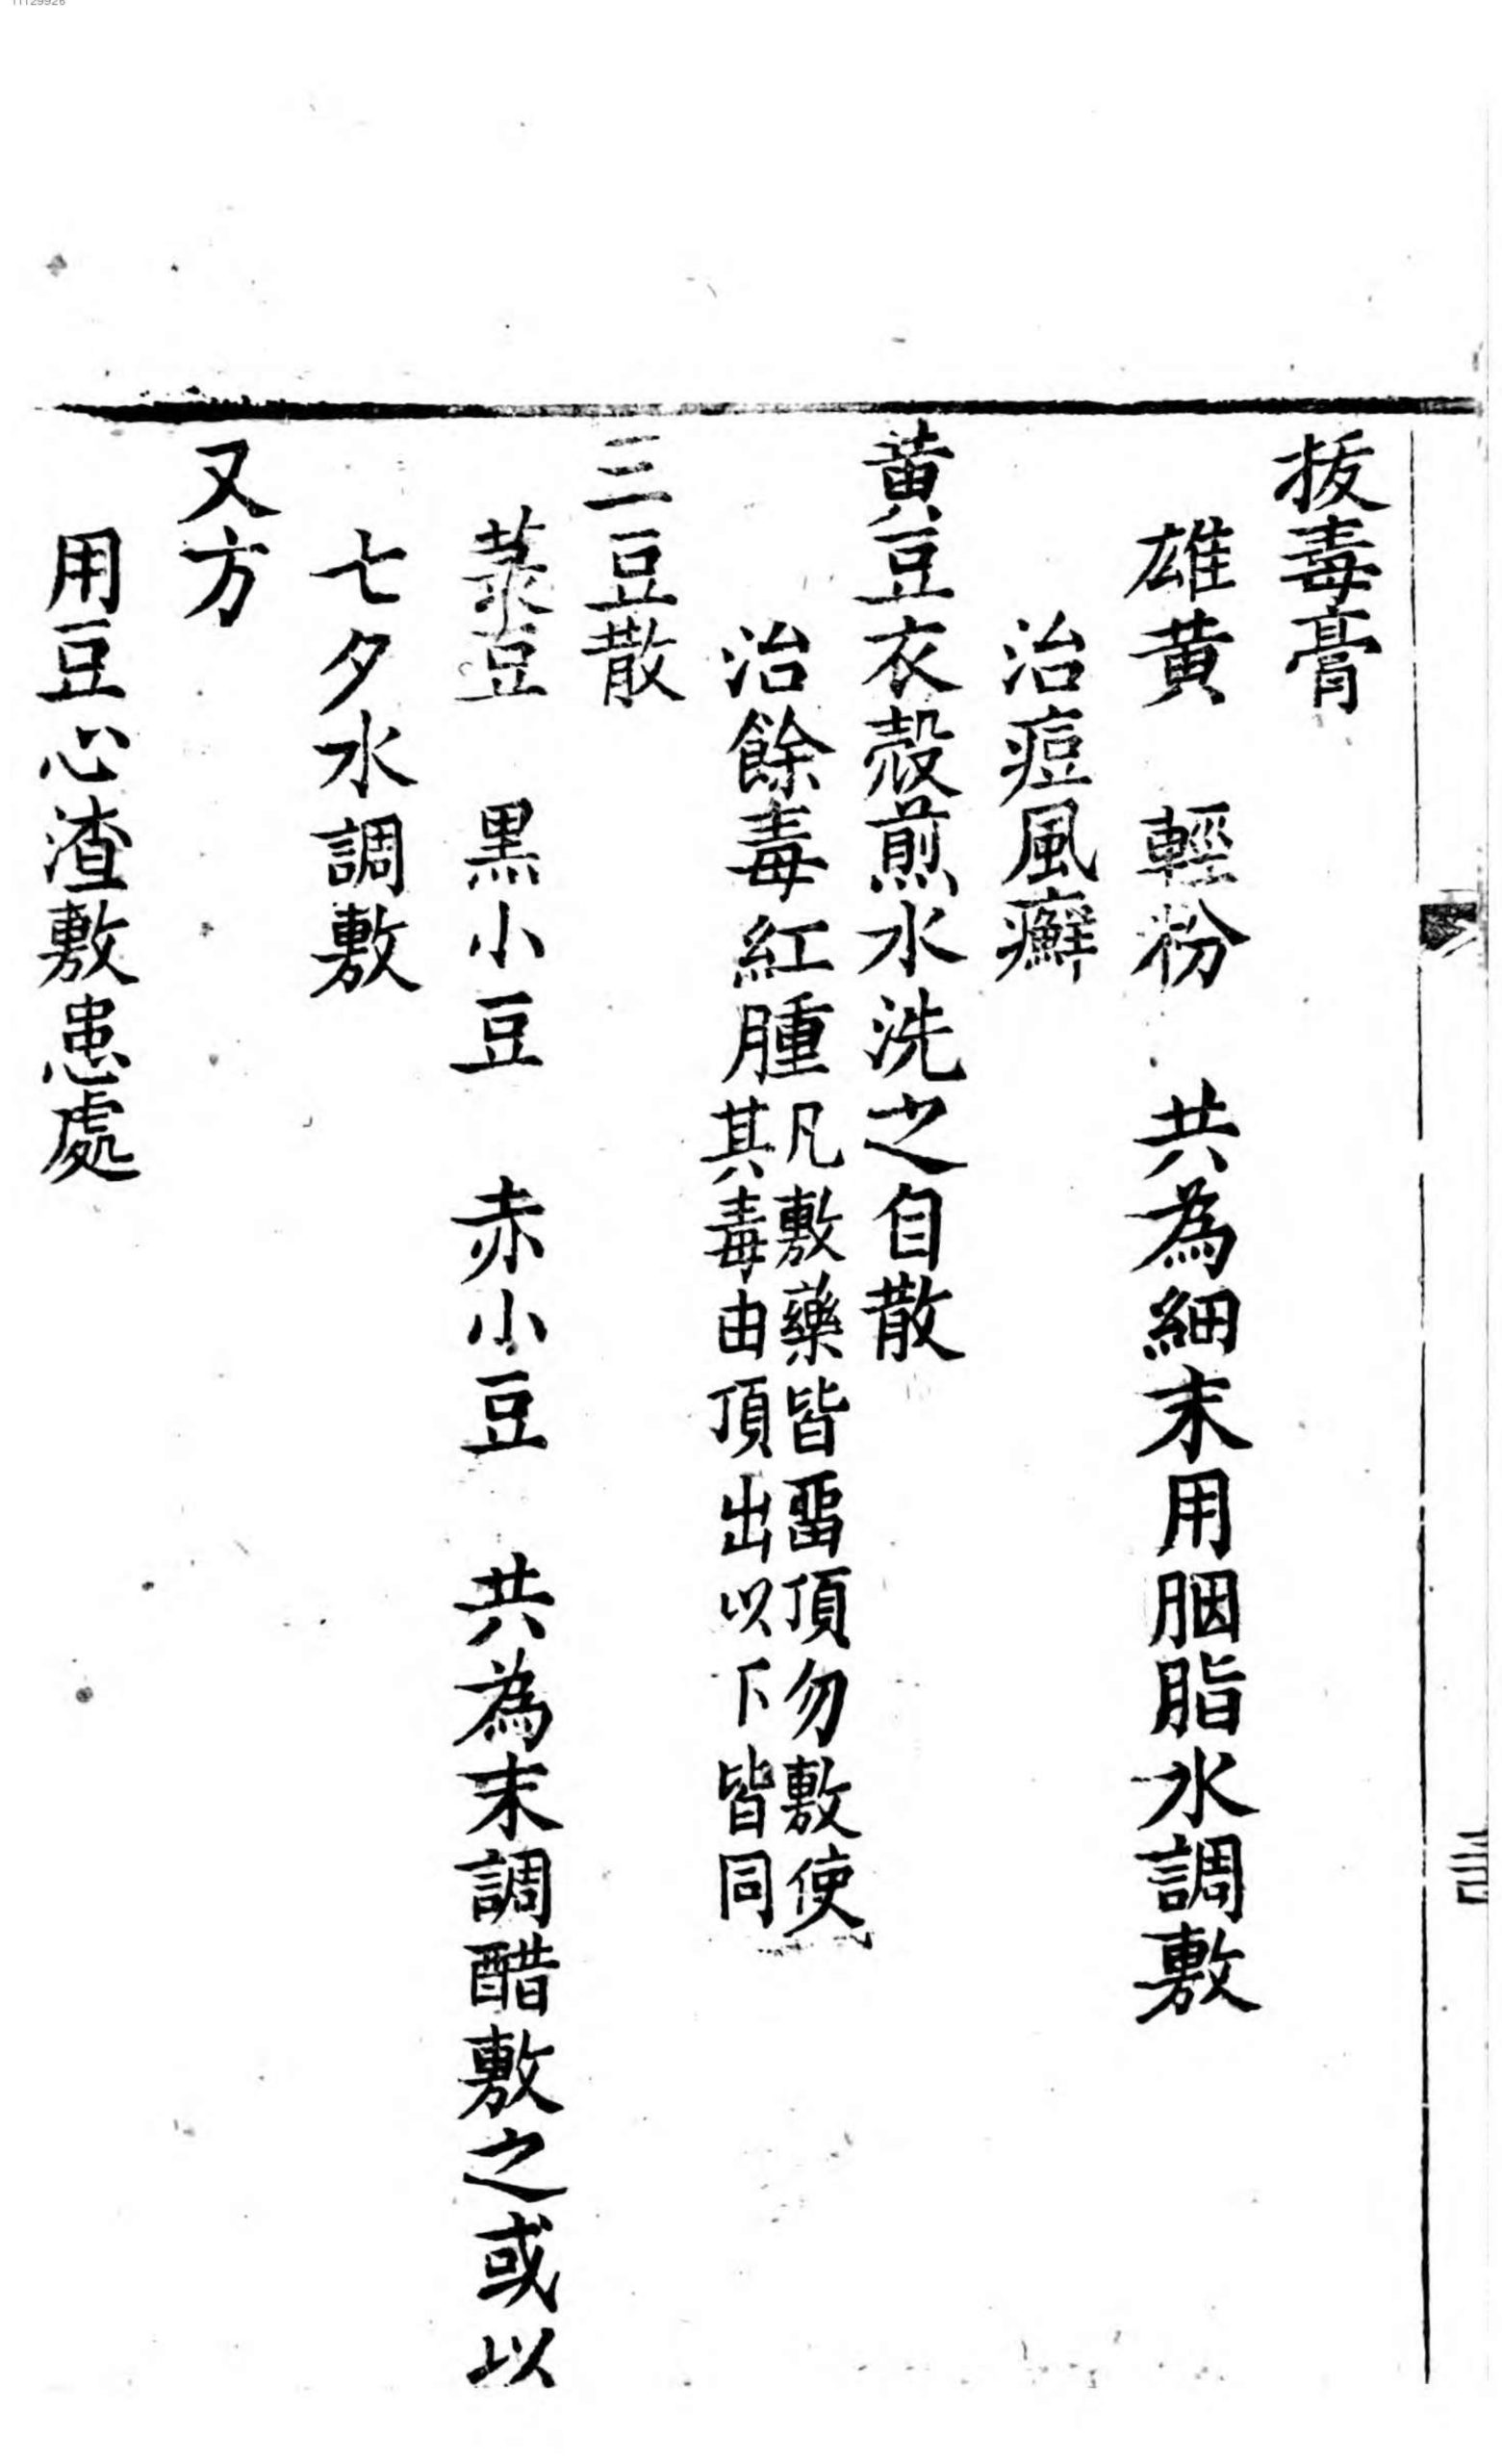 11129926
拔毒膏
雄黄　輕粉　共為細末用胭脂水調敷
治痘風癬
黄豆衣殻煎水洗之自散
治餘毒紅腫凡敷藥皆畱頂勿敷使其毒由頂出以下皆同
三豆散
菉豆　黒小豆　赤小豆　共為末調醋敷之或以
七夕水調敷
又方
用豆心渣敷患處